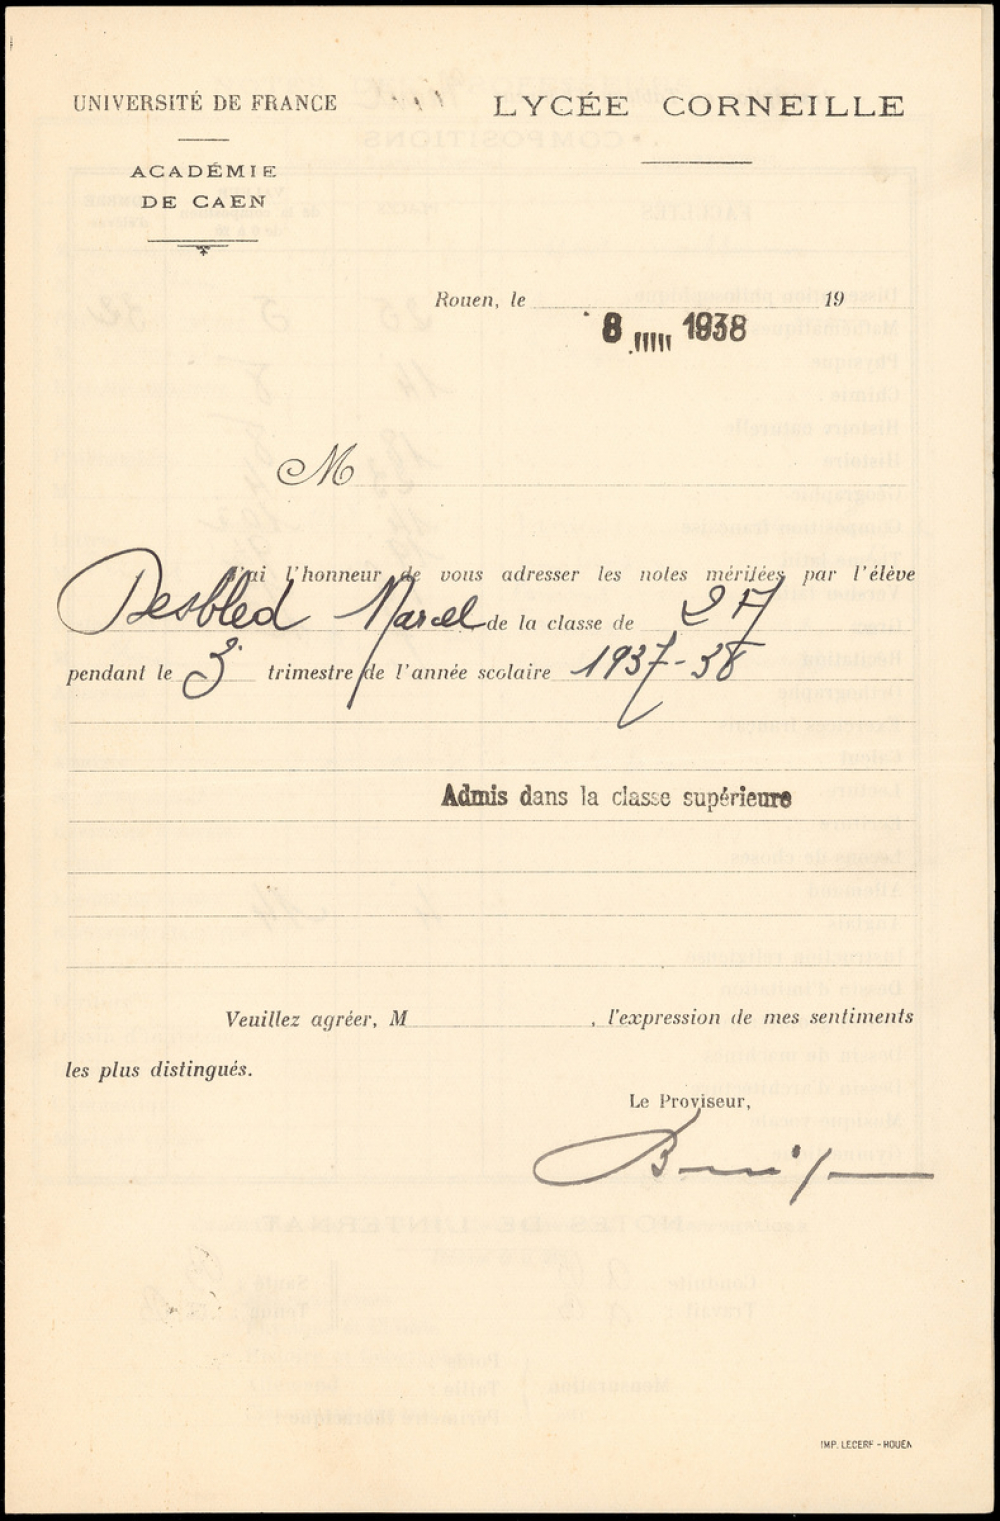 UNIVERSITÉ DE FRANCE
LYCÉE CORNEILLE
ACADÉMIE
DE CAEN
Rouen, le 19
8 1938
M
J'ai l'honneur de vous adresser les notes méritées par l'élève
Desbled Marcel de la classe de
pendant le 3e trimestre de l'année scolaire 1937-38
Admis dans la classe supérieure
Veuillez agréer, M , l'expression de mes sentiments
les plus distingués.
Le Proviseur,
IMP. LECERF - ROUEN